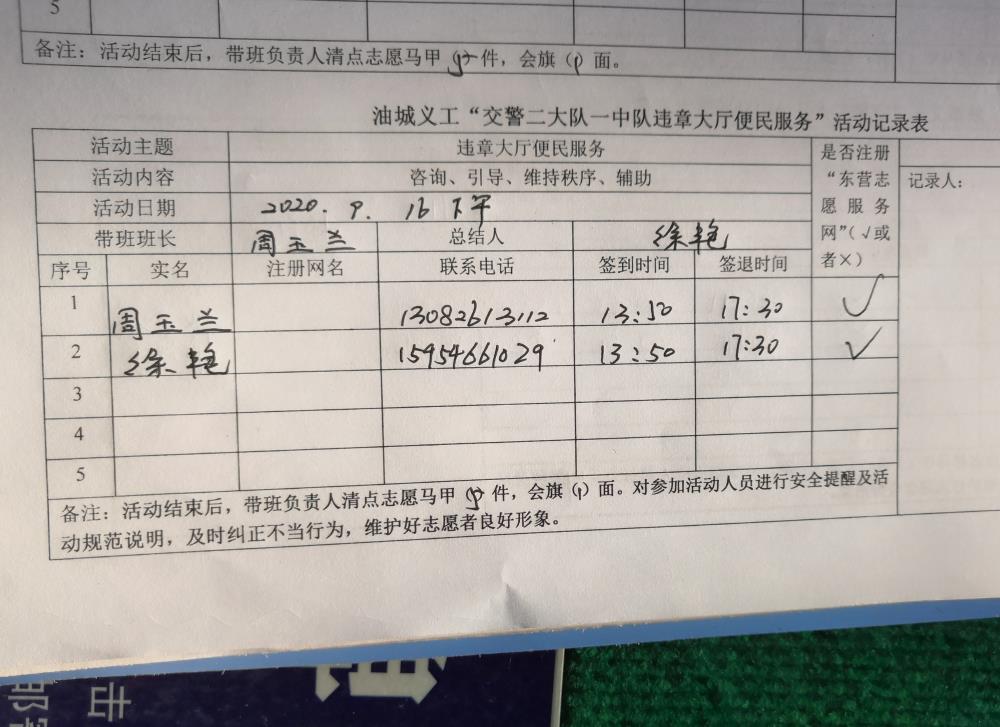 5
备注：活动结束后，带班负责人清点志愿马甲 件，会旗（ 面。
油城义工“交警二大队一中队违章大厅便民服务”活动记录表
活动主题 违章大厅便民服务 是否注册“东营志愿服务网”（√或者×）
活动内容 咨询、引导、维持秩序、辅助 记录人：
活动日期 2020.9.16下午
带班班长 周玉兰 总结人 徐艳
序号 实名 注册网名 联系电话 签到时间 签退时间
1 周玉兰 13082613112 13:50 17:30 √
2 徐艳 15954661029 13:50 17:30 √
3
4
5
备注：活动结束后，带班负责人清点志愿马甲 件，会旗（ ）面。对参加活动人员进行安全提醒及活
动规范说明，及时纠正不当行为，维护好志愿者良好形象。